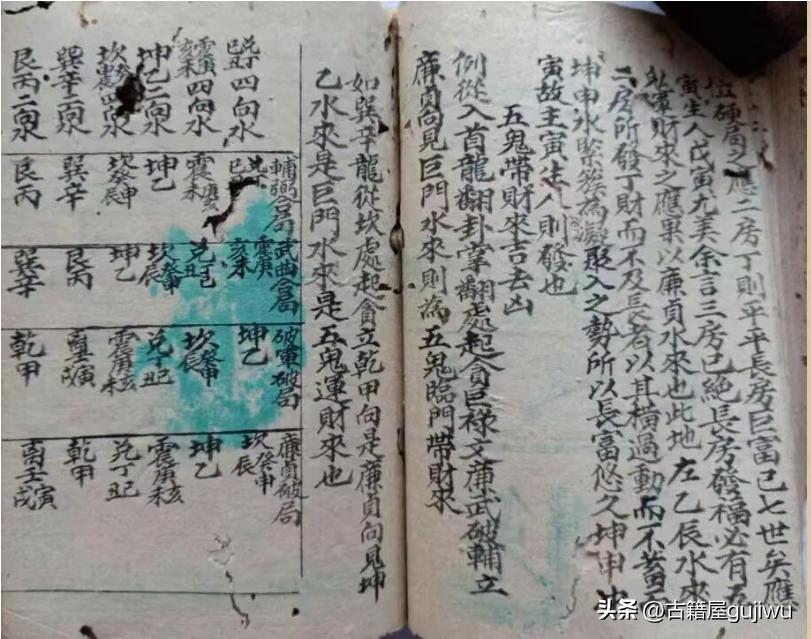 局之應二房丁則平平長房巨富已七世矣應
寅生人戊寅尤美余言三房已絕長房發福必有
軍財來之應果以廉貞水來也此地左乙辰水來
二房所發丁財而不及長者以其橫過動而不蓄
坤申水緊簇為凝聚入之勢所以長富悠久坤申
寅故主寅生人則發也
五鬼帶財來吉去凶
例從入首龍翻卦掌翻處起貪巨祿文廉武破輔立
廉貞向見巨門水來則為五鬼臨門帶財來
如巽辛龍從坎處起貪立乾甲向是廉貞向見坤
乙水來是巨門水來是五鬼運財來也
兌丁巳丑四向水
震庚亥未四向水
坤乙二向水
坎癸四向水
巽辛二向水
艮丙二向水
輔弼合局
巳丑
震庚未
坤乙
坎癸辰申
巽辛
艮丙
武曲合局
震庚亥未
兌丁巳丑
坎癸申辰
坤乙
艮丙
巽辛
破軍破局
坤乙
坎癸申辰
兌丁巳丑
震庚亥未
壬寅戌
乾甲
廉貞破局
坎癸申辰
坤乙
震庚亥未
兌丁巳丑
乾甲
壬寅戌
头条 @古籍屋gujiwu